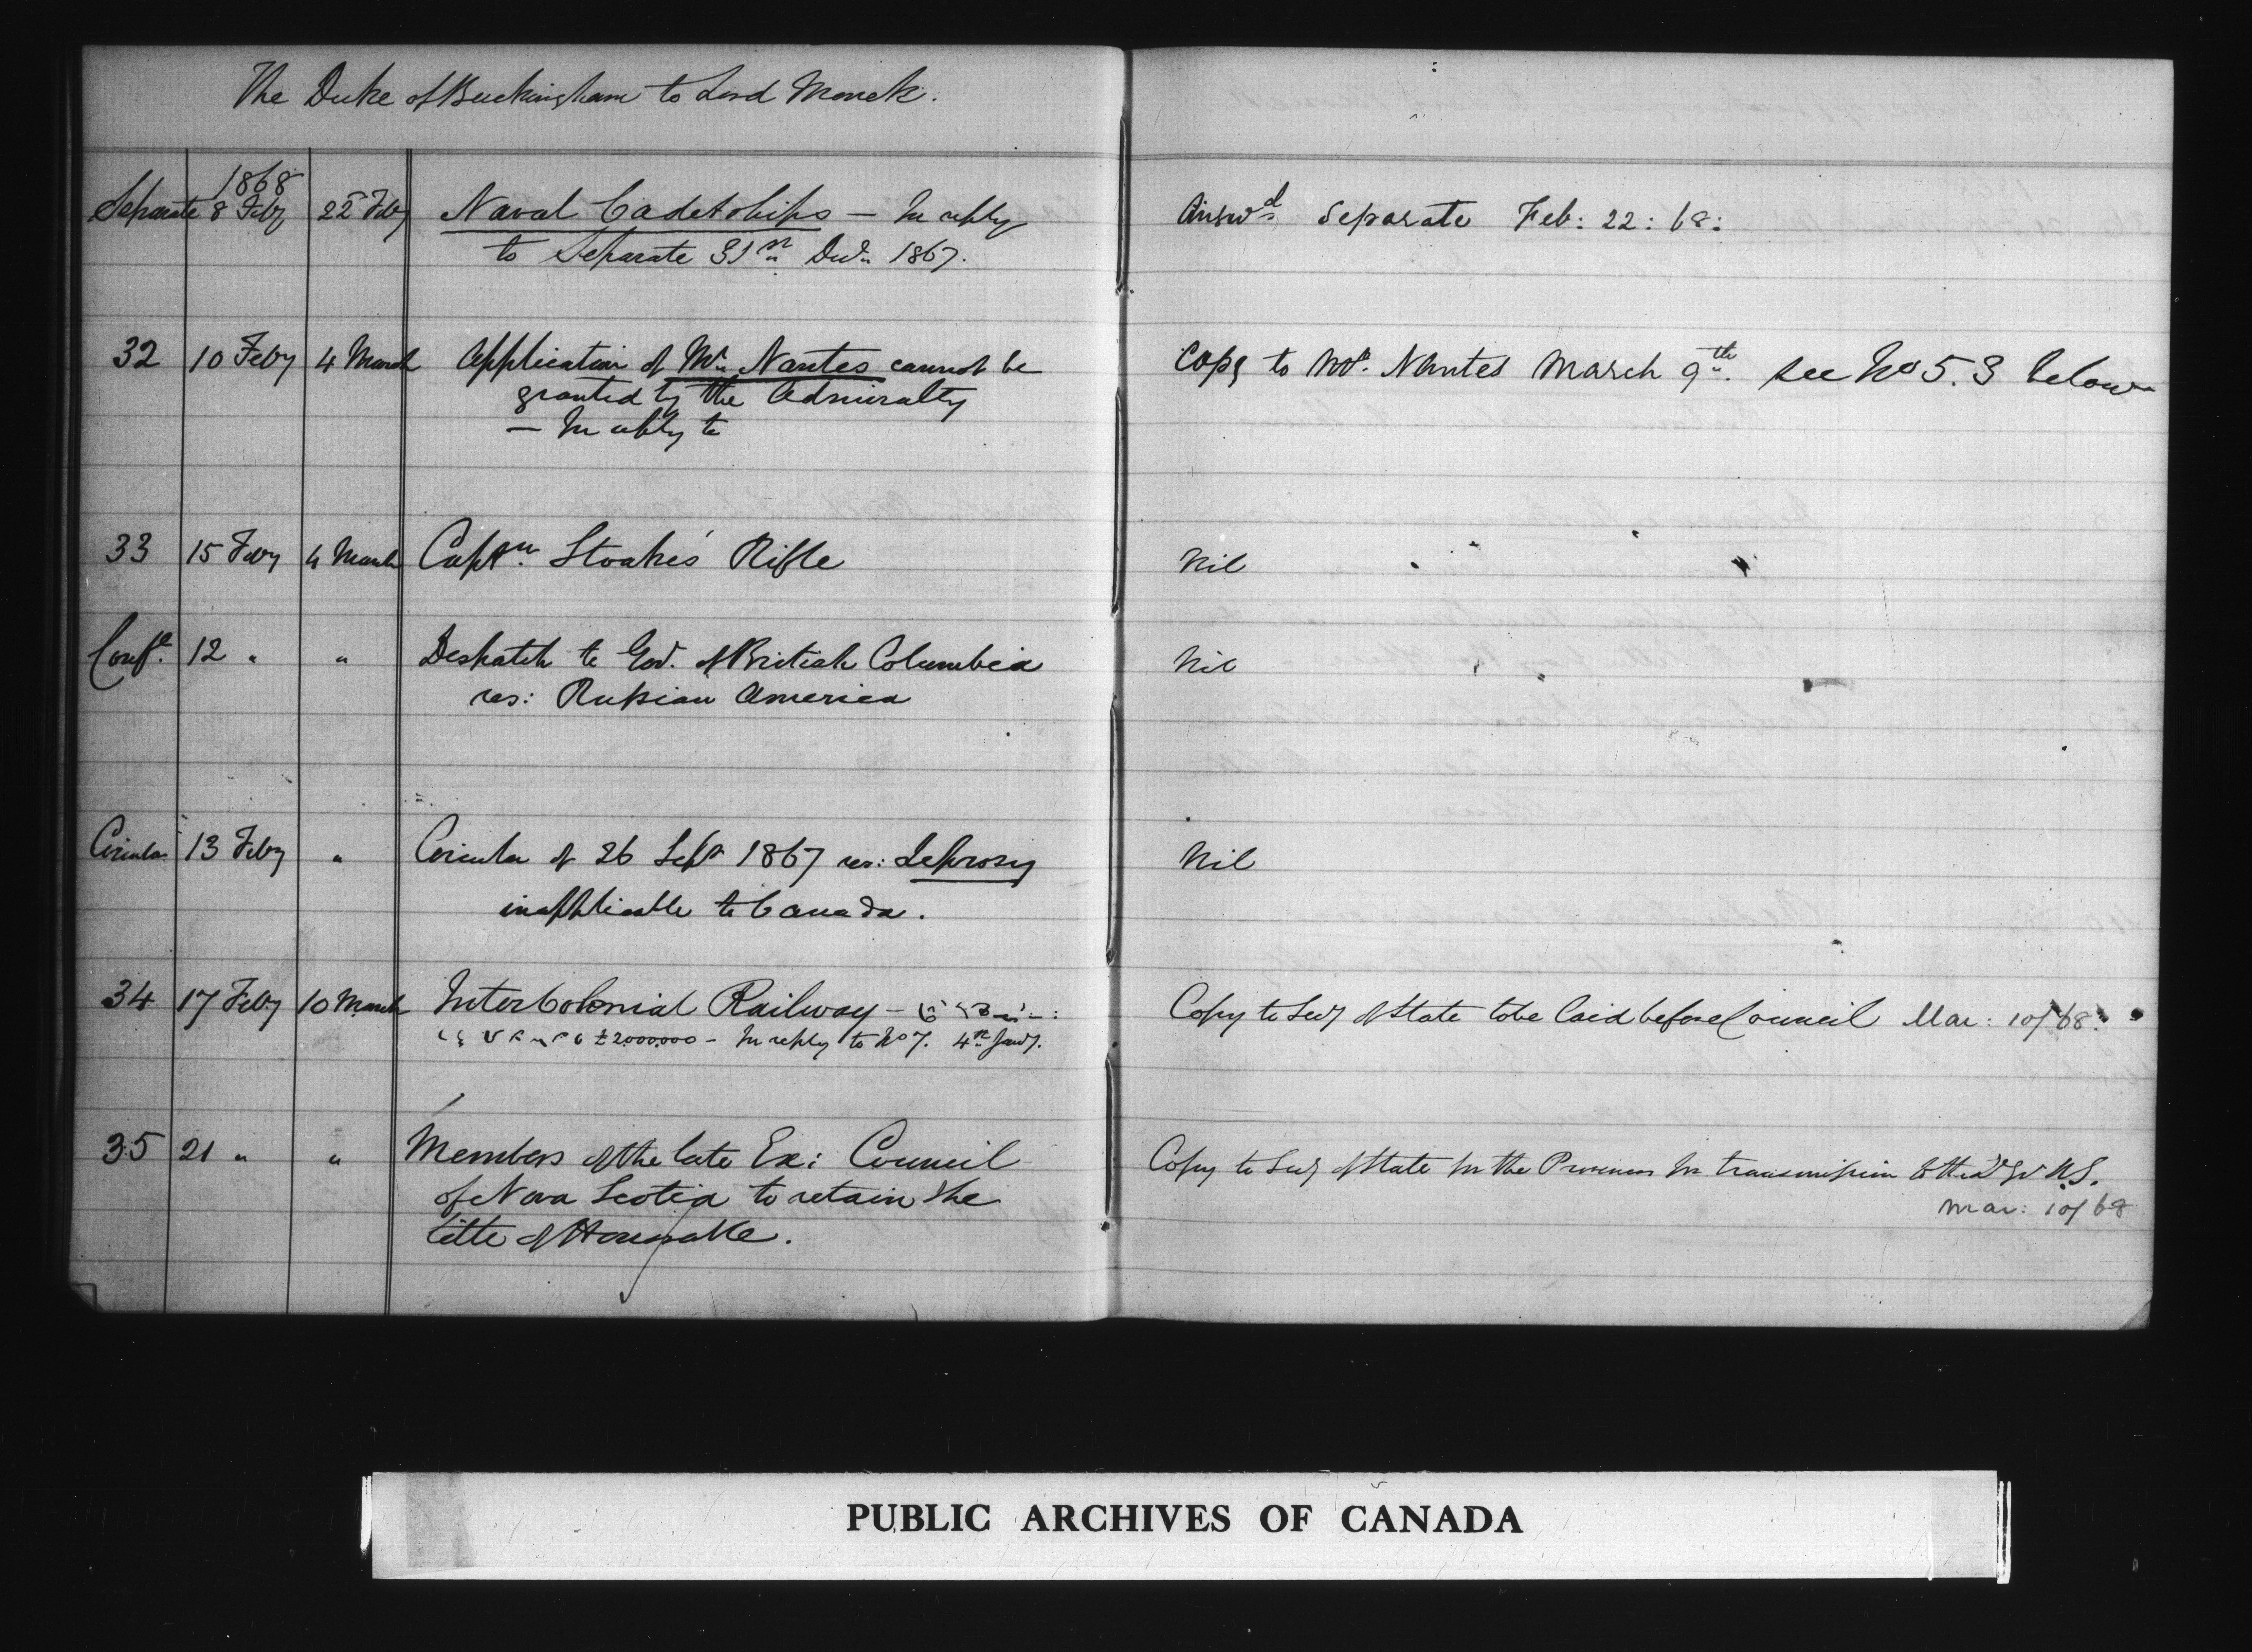 The Duke of Buckingham to Lord Monck.
1868
Separate 8 Feby 22 Feby Naval Cadetships — In reply Answd Separate Feb: 22: 68:
to Separate 31st Decr 1867.
32 10 Feby 4 March Application of Mr Nantes cannot be Copy to Mr. Nantes March 9th. See No 53 below
granted by the Admiralty
— In reply to
33 15 Feby 4 March Captn. Stoakes' Rifle Nil
Conf. 12 " " Despatch to Gov. of British Columbia Nil
res: Russian America
Circular 13 Feby " Circular of 26 Sept 1867 res: Leprosy Nil
inapplicable to Canada.
34 17 Feby 10 March Intercolonial Railway — Copy to Secy of State to be laid before Council Mar: 10/68.
£2.000.000 — In reply to No 7. 4th Jany.
35 21 " " Members of the late Ex: Council Copy to Secy of State for the Provinces for transmission to the N.S.
of Nova Scotia to retain the Mar: 10/68
title of Honorable.
PUBLIC ARCHIVES OF CANADA